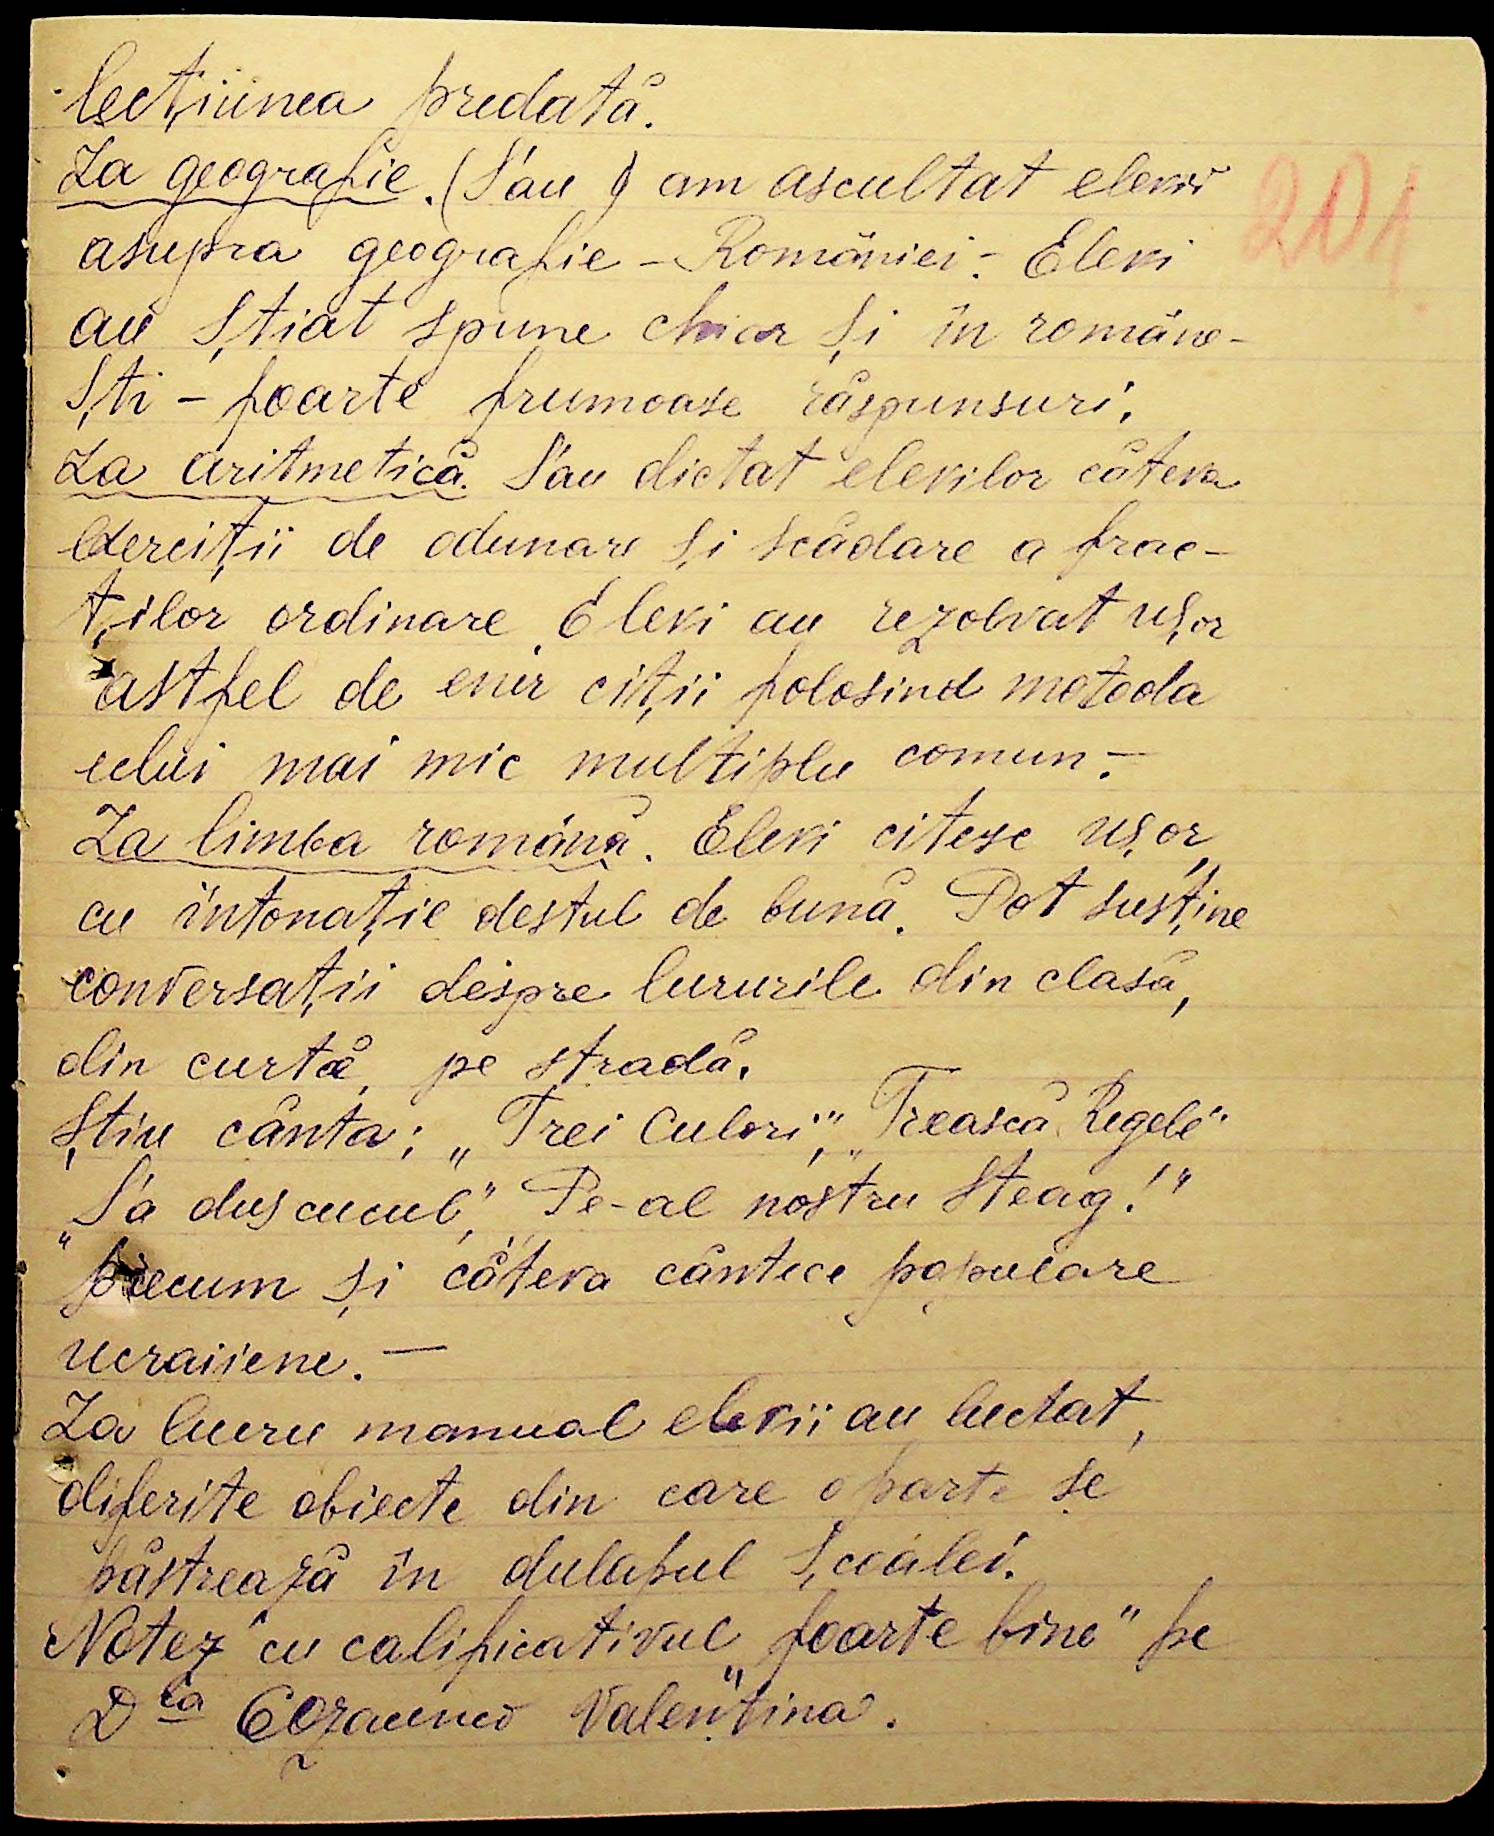 lecțiunea predată.
La geografie. (S'au) am ascultat elevii
201
asupra geografie – României. – Elevi
au știat spune chiar și în române-
ști – foarte frumoase răspunsuri.
La aritmetică. S'au dictat elevilor câteva
exerciții de adunare și scădare a frac-
ților ordinare. Elevi au rezolvat ușor
astfel de exerciții folosind metoda
celui mai mic multiplu comun. –
La limba română. Elevi citesc ușor,
cu intonație destul de bună. Pot susține
conversații despre lururile din clasă,
din curtă, pe stradă.
Știu cânta; „Trei Culori”, „Trească Regele”
„S'a dus cucul”, „Pe-al nostru Steag!”
precum și câteva cântece populare
ucraiiene. –
La lucru manual elevii au luctat,
diferite obiecte din care o parte se
păstrează în dulapul școalei.
Notez cu calificativul „foarte bine” pe
Dla Valentina.